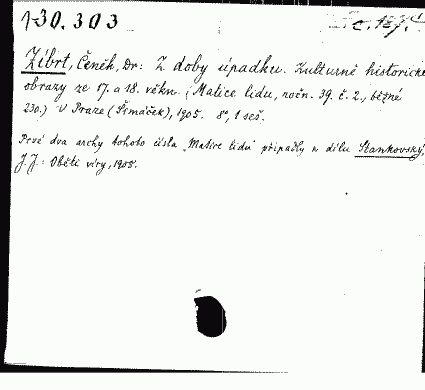 1-30.303
Zíbrt, Čeněk, Dr: Z doby úpadku. Kulturně historické
obrazy ze 17. a 18. věku. (Matice lidu, ročn. 39. č. 2., běžné
230.) V Praze (Šimáček), 1905. 8°, 1 seš.
Prvé dva archy tohoto čísla „Matice lidu" připadly k dílu Stankovský,
J. J.: Oběti víry, 1905.